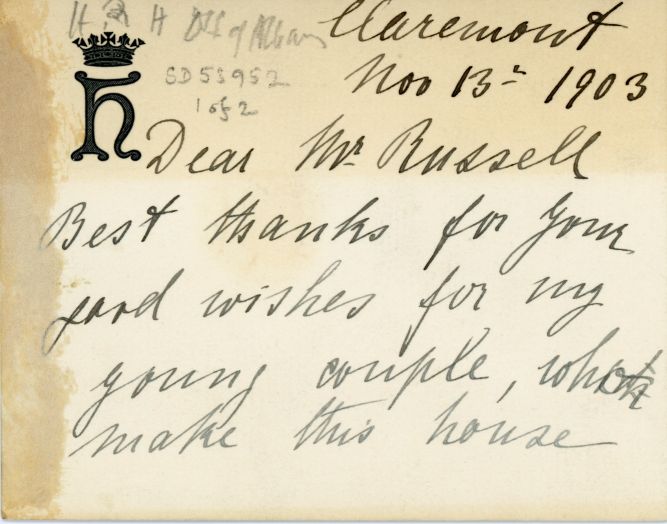 H. R H Dss of Albany
SD 55952
1 of 2
H
Claremont
Nov 13th 1903
Dear Mr Russell
Best thanks for your
good wishes for my
young couple,
make this house